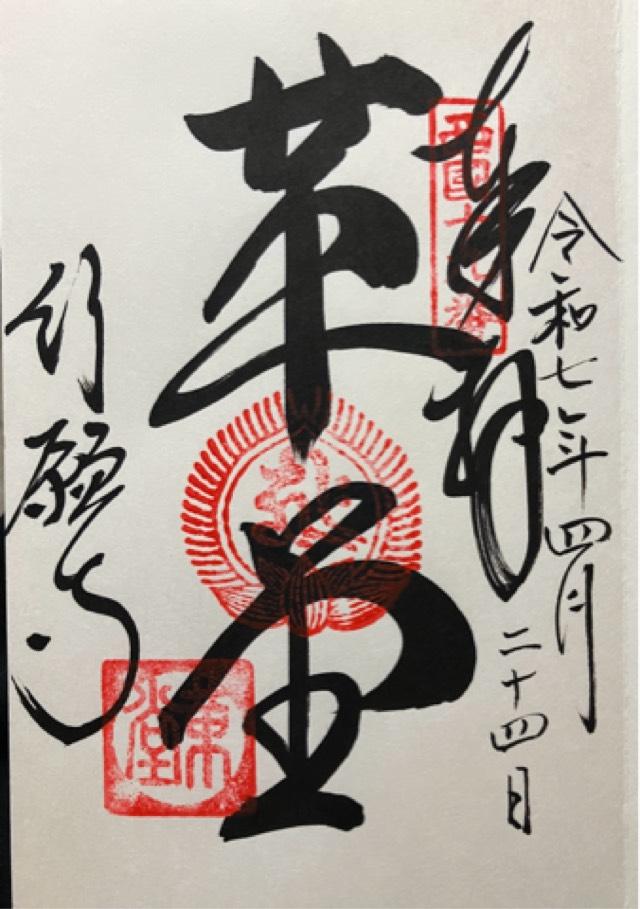 奉拝
令和七年四月二十四日
西国十九番
革堂
行願寺
革堂